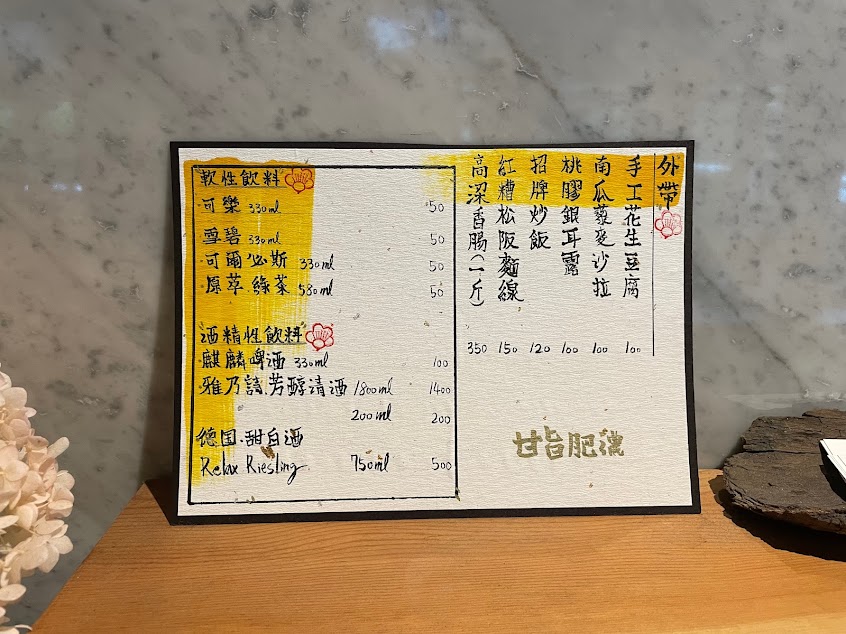 軟性飲料
可樂 330ml 50
雪碧 330ml 50
·可爾必斯 330ml 50
·原萃.綠茶 580ml 50
酒精性飲料
·麒麟啤酒 330ml 100
·雅乃詩.芳醇清酒 1800ml 1400
200ml 200
德国.甜白酒
Relax Riesling 750ml 500
外帶
手工花生豆腐 100
南瓜藜麥沙拉 100
桃膠銀耳露 100
招牌炒飯 120
紅糟松阪麵線 150
高深香腸(一斤) 350
甘旨肥濃